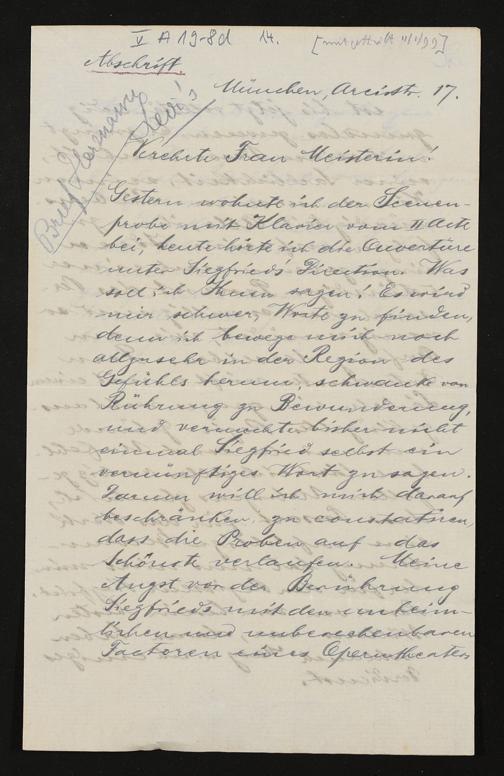 V A 19-8d 14. [mitgeteilt 11/1/99]
Abschrift.
Brief Hermann Levi's
München, Arcisstr. 17.
Verehrte Frau Meisterin!
Gestern wohnte ich der Scenen-
probe mit Klavier vom II Acte
bei, heute hörte ich die Ouvertüre
unter Siegfrieds' Direction. Was
soll ich Ihnen sagen! Es wird
mir schwer, Worte zu finden,
denn ich bewege mich noch
allzusehr in der Region des
Gefühls herum, schwanke von
Rührung zu Bewunderung,
und vermochte bisher nicht
einmal Siegfried selbst ein
vernünftiges Wort zu sagen.
Darum will ich mich darauf
beschränken, zu constatiren,
dass die Proben auf das
Schönste verlaufen. Meine
Angst vor der Berührung
Siegfrieds mit den unheim-
lichen und unberechenbaren
Factoren eines Operntheaters